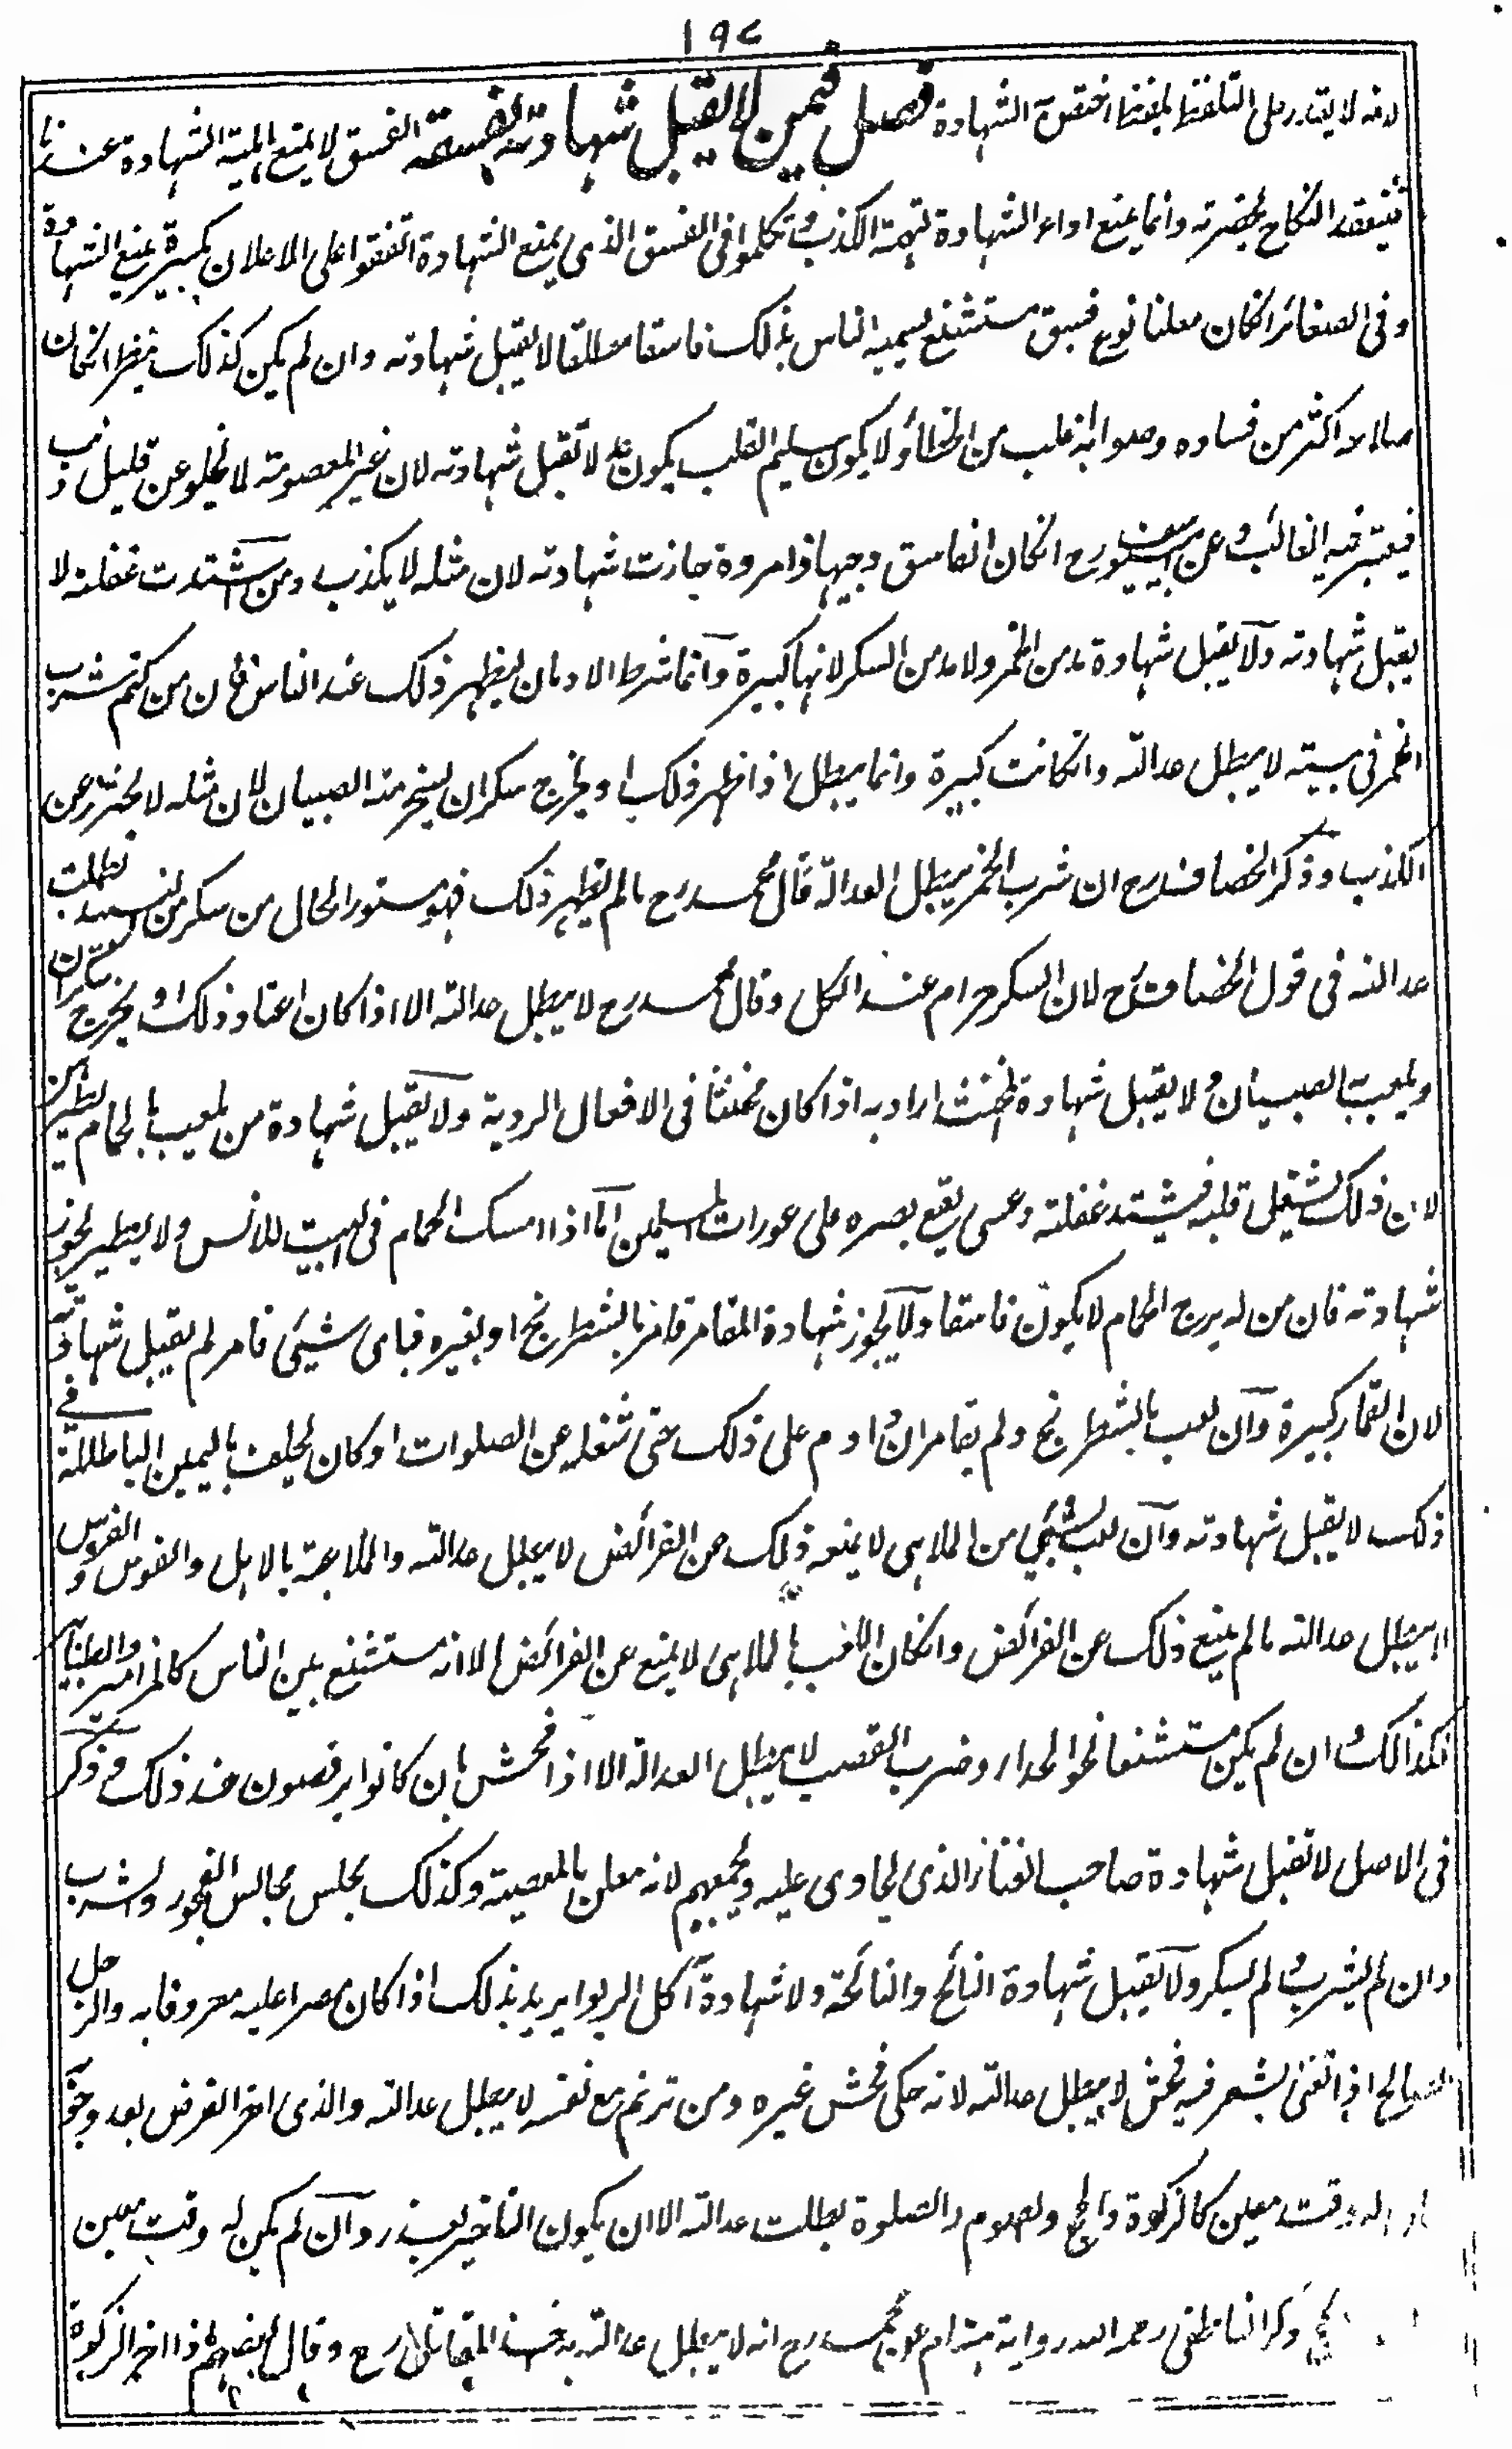 ١٩٧
لانه لا يقدر على التلفظ بلفظ اختص به الشهادة فصل فيمن لا تقبل شهادته لفسقه الفسق لا يمنع اهلية الشهادة عندنا
فينعقد النكاح بحضرته وانما يمنع اداء الشهادة لتهمة الكذب وتكلموا فى الفسق الذى يمنع الشهادة اتفقوا على الاعلان بكبيرة يمنع الشهادة
وفى الصغائر انكان معلنا نوع فسق مستشنع يسميه الناس بذلك فاسقا مطلقا لا يقبل شهادته وان لم يكن كذلك ينظر انكان
صلاحه اكثر من فساده وصوابه اغلب من الخطأ ولا يكون سليم القلب يكون عدلا تقبل شهادته لان غير المعصوم لا يخلو عن قليل ذنب
فيعتبر فيه الغالب وعن ابى يوسف رح انكان الفاسق وجيها ذا مروة جازت شهادته لان مثله لا يكذب ومن اشتدت غفلته لا
يقبل شهادته ولا يقبل شهادة مدمن الخمر ولا مدمن السكر لانها كبيرة وانما شرط الادمان ليظهر ذلك عند الناس فان من كتم شرب
الخمر فى بيته لا يبطل عدالته وانكانت كبيرة وانما يبطل اذا ظهر ذلك او يخرج سكران يسخر منه الصبيان لان مثله لا يحترز عن
الكذب وذكر الخصاف رح ان شرب الخمر يبطل العدالة قال محمد رح مالم يظهر ذلك فهو مستور الحال من سكر من النبيذ بطلت
عدالته فى قول الخصاف رح لان السكر حرام عند الكل وقال محمد رح لا يبطل عدالته الا اذا كان اعتاد ذلك او يخرج سكران
ويلعب به الصبيان ولا يقبل شهادة المخنث اراد به اذا كان مخنثا فى الافعال الردية ولا يقبل شهادة من يلعب بالحمام يطيرهن
لان ذلك يشغل قلبه فيشتد غفلته وعسى يقع بصره على عورات المسلمين اما اذا امسك الحمام فى البيت للانس ولا يطير يجوز
شهادته فان من له برج الحمام لا يكون فاسقا ولا يجوز شهادة المقامر قامر بالشطرنج او بغيره فباى شيئ قامر لم يقبل شهادته
لان القمار كبيرة وان لعب بالشطرنج ولم يقامر ان داوم على ذلك حتى شغله عن الصلوات او كان يحلف باليمين الباطلة فى
ذلك لا يقبل شهادته وان لعب بشيئ من الملاهى لا يمنعه ذلك عن الفرائض لا يبطل عدالته والملاعبة بالاهل والقوس والفرس
لا يبطل عدالته مالم يمنع ذلك عن الفرائض وانكان اللاعب بالملاهى لا يمنع عن الفرائض الا انه مستشنع بين الناس كالمزامير والطنابير
فكذلك وان لم يكن مستشنعا نحو الحداء وضرب القصب لا يبطل العدالة الا اذا فحش بان كانوا يرقصون عند ذلك وذكر
فى الاصل لا تقبل شهادة صاحب الغناء الذى يخادن عليه ويجمعهم لانه معلن بالمعصية وكذلك يجلس مجالس الفجور والشرب
وان لم يشرب ولم يسكر ولا يقبل شهادة النائح والنائحة ولا شهادة آكل الربوا يريد بذلك اذا كان مصرا عليه معروفا به والرجل
الصالح اذا تغنى بشعر فيه فحش لا يبطل عدالته لانه حكى فحش غيره ومن ترنم مع نفسه لا يبطل عدالته والذى اخر الفرض بعد وجوبه
له وقت معين كالزكوة والحج والصوم والصلوة بطلت عدالته الا ان يكون التاخير بعذر وان لم يكن له وقت معين
ذكر الناطفى رحمه الله رواية هشام عن محمد رح انه لا يبطل عدالته وبه اخذ محمد بن مقاتل رح وقال بعضهم اذا اخر الزكوة